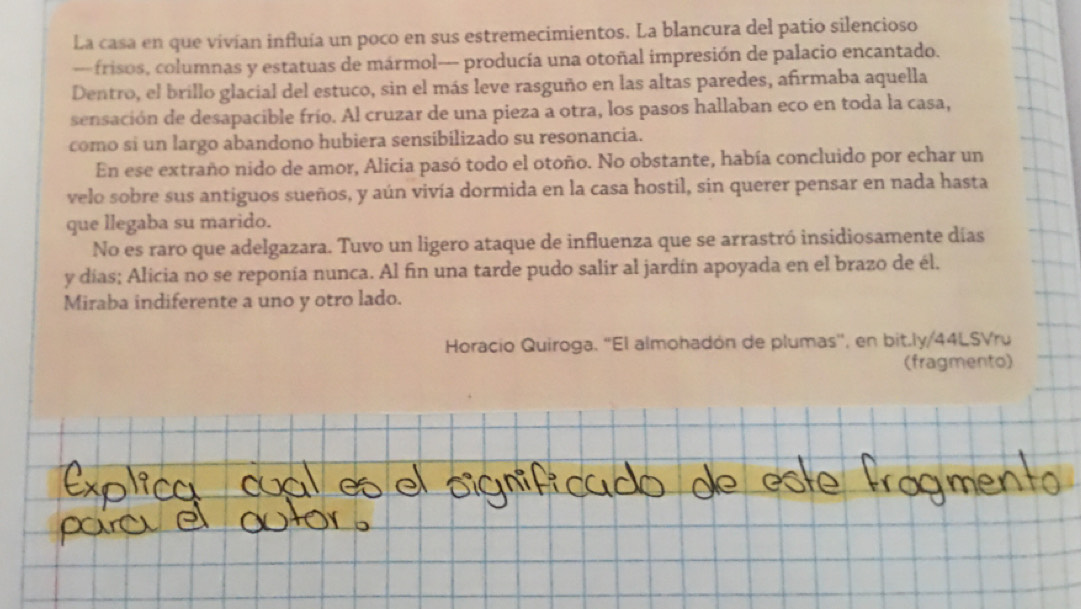 La casa en que vivían influía un poco en sus estremecimientos. La blancura del patio silencioso
—frisos, columnas y estatuas de mármol— producía una otoñal impresión de palacio encantado.
Dentro, el brillo glacial del estuco, sin el más leve rasguño en las altas paredes, afirmaba aquella
sensación de desapacible frío. Al cruzar de una pieza a otra, los pasos hallaban eco en toda la casa,
como si un largo abandono hubiera sensibilizado su resonancia.
En ese extraño nido de amor, Alicia pasó todo el otoño. No obstante, había concluido por echar un
velo sobre sus antiguos sueños, y aún vivía dormida en la casa hostil, sin querer pensar en nada hasta
que llegaba su marido.
No es raro que adelgazara. Tuvo un ligero ataque de influenza que se arrastró insidiosamente días
y días; Alicia no se reponía nunca. Al fin una tarde pudo salir al jardín apoyada en el brazo de él.
Miraba indiferente a uno y otro lado.
Horacio Quiroga. "El almohadón de plumas", en bit.ly/44LSVru
(fragmento)
Explica cual es el significado de este fragmento
para el autor.